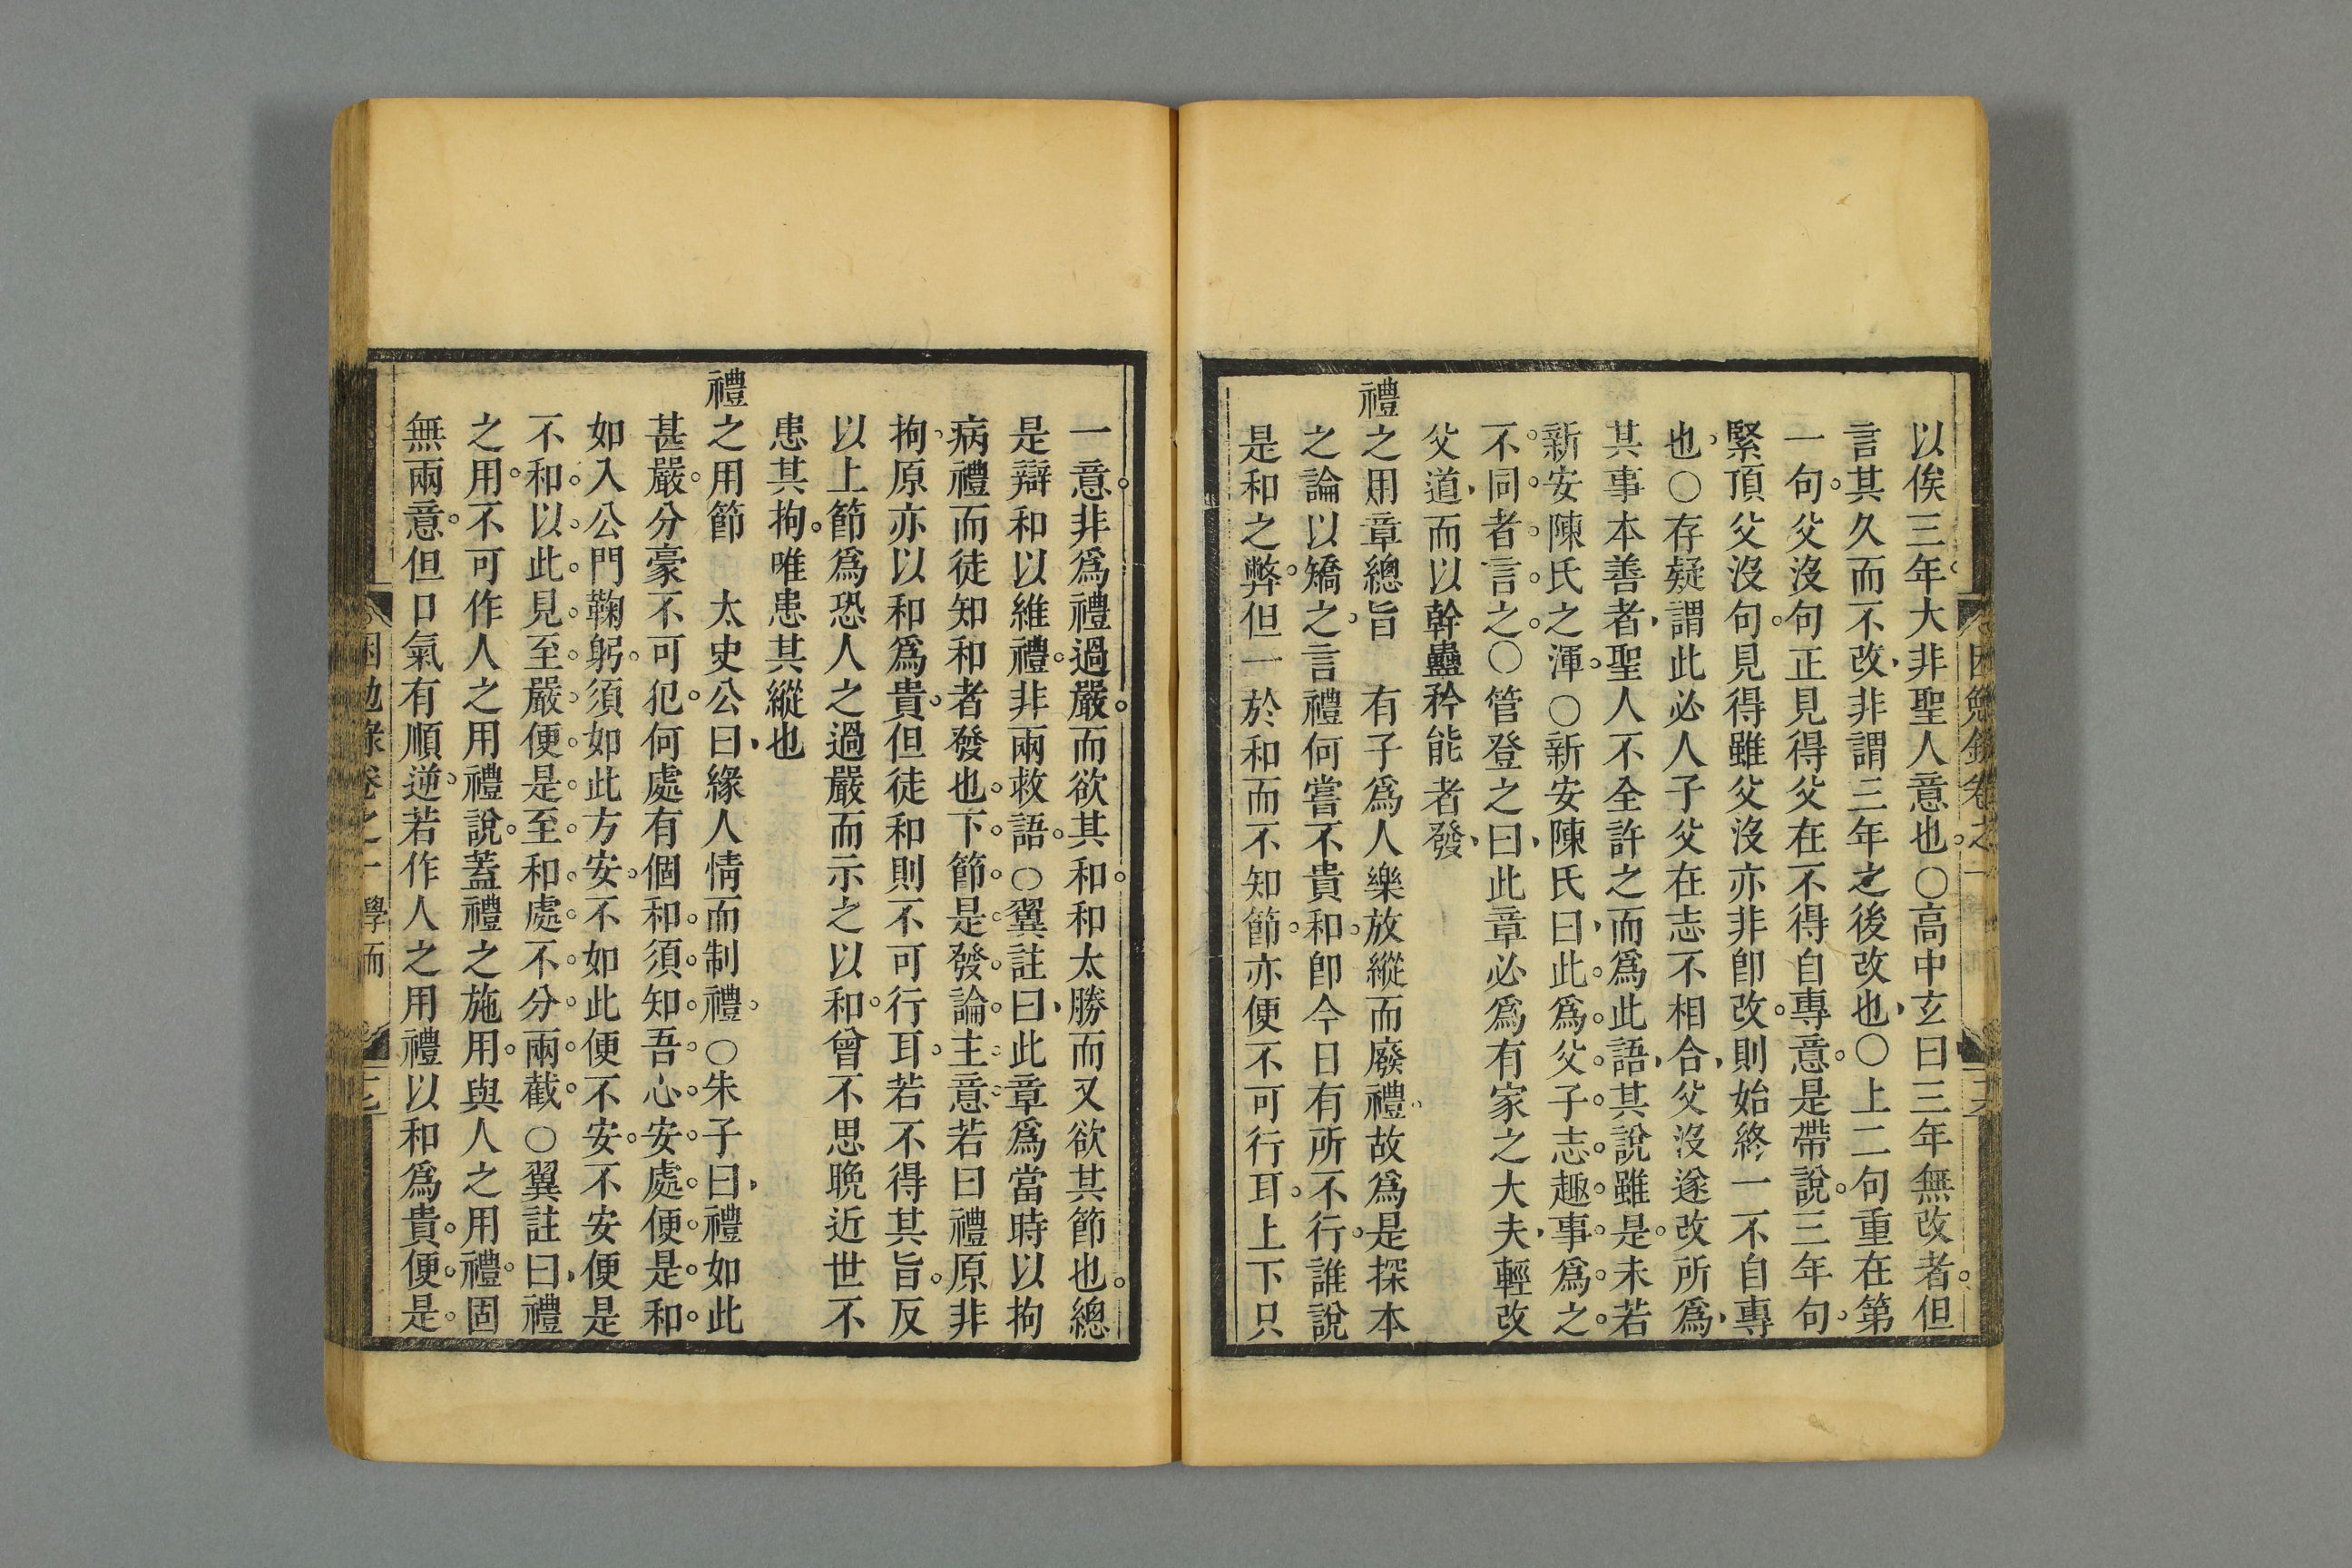 以俟三年大非聖人意也○高中玄曰三年無改者但
言其久而不改非謂三年之後改也○上二句重在第
一句父沒句正見得父在不得自專意是帶說三年句
緊頂父沒句見得雖父沒亦非卽改則始終一不自專
也○存疑謂此必人子父在志不相合父沒遂改所爲
其事本善者聖人不全許之而爲此語其說雖是未若
新安陳氏之渾○新安陳氏曰此爲父子志趣事爲之
不同者言之○管登之曰此章必爲有家之大夫輕改
父道而以幹蠱矜能者發
禮之用章總旨 有子爲人樂放縱而廢禮故爲是探本
之論以矯之言禮何嘗不貴和卽今日有所不行誰說
是和之弊但一於和而不知節亦便不可行耳上下只
一意非爲禮過嚴而欲其和和太勝而又欲其節也總
是辯和以維禮非兩救語○翼註曰此章爲當時以拘
病禮而徒知和者發也下節是發論主意若曰禮原非
拘原亦以和爲貴但徒和則不可行耳若不得其旨反
以上節爲恐人之過嚴而示之以和曾不思晚近世不
患其拘唯患其縱也
禮之用節 太史公曰緣人情而制禮○朱子曰禮如此
甚嚴分豪不可犯何處有個和須知吾心安處便是和
如入公門鞠躬須如此方安不如此便不安不安便是
不和以此見至嚴便是至和處不分兩截○翼註曰禮
之用不可作人之用禮說蓋禮之施用與人之用禮固
無兩意但口氣有順逆若作人之用禮以和爲貴便是
困勉錄卷之一 學而